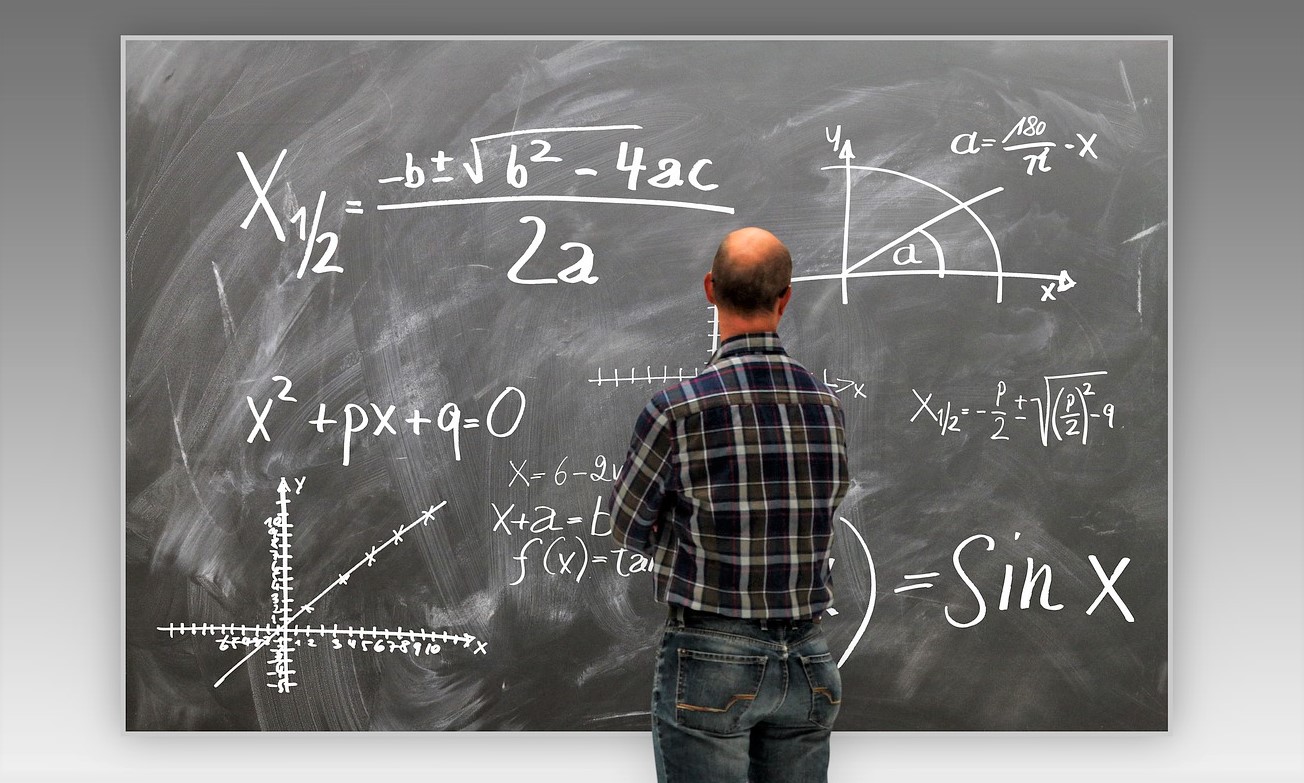 X₁/₂ = -b±√b² - 4ac / 2a
y
a = 180/π · x
a
x
x
x² + px + q = 0
X₁/₂ = -p/2 ± √(p/2)² - q
X = 6 - 2
x + a = b
f(x) = ta
y
10
1 2 3 4 5 6 7 8 9 10 x
) = Sin x